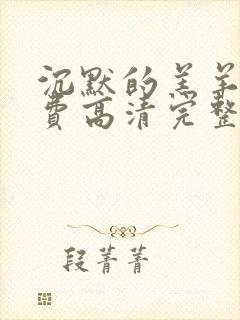 沉默的羔羊
费高清完整
段菁菁